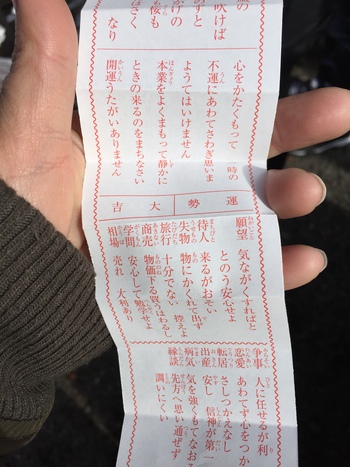 吹けば
すと
けの
桜も
さく
なり
心をかたくもって 時の
不運にあわてさわぎ思いま
ようてはいけません
本業をよくまもって静かに
ときの来るのをまちなさい
開運うたがいありません
運勢 大吉
願望 気ながくすればと
とのう安心せよ
待人 来るがおそい
失物 物にかくれて出ず
旅行 十分でない 控えよ
商売 物価下る買うはわるし
学問 安心して勉学せよ
相場 売れ 大利あり
争事 人に任せるが利
恋愛 あわてず心をつか
転居 さしつかえなし
出産 安し 信神が第一
病気 気を強くもてなおる
縁談 先方へ思い通ぜず
調いにくい